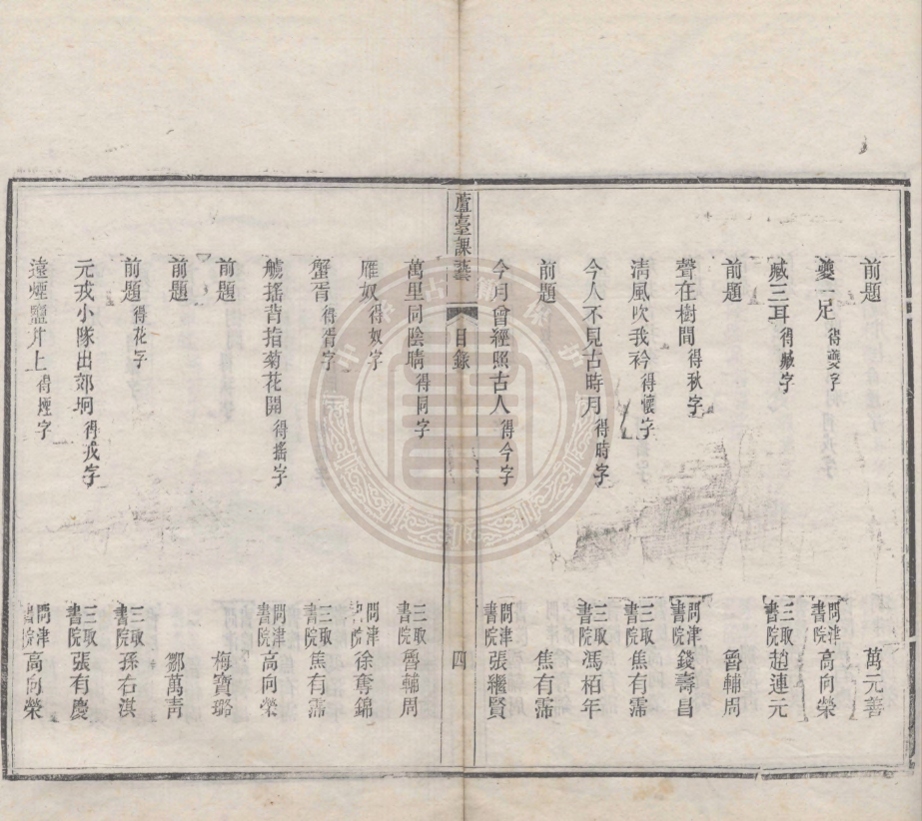 前題 萬元善
夔一足 得夔字 問津書院 高向榮
臧三耳 得臧字 三取書院 趙連元
前題 魯輔周
聲在樹間 得秋字 問津書院 錢壽昌
清風吹我衿 得懷字 三取書院 焦有霈
今人不見古時月 得時字 三取書院 馮栢年
前題 焦有霈
今月曾經照古人 得今字 問津書院 張繼賢
蘆臺課藝 目錄 四
萬里同陰晴 得同字 三取書院 魯輔周
雁奴 得奴字 問津書院 徐奪錦
蟹胥 得胥字 三取書院 焦有霈
艣搖背指菊花開 得搖字 問津書院 高向榮
前題 梅寶璐
前題 鄒萬青
前題 得花字 三取書院 孫右淇
元戎小隊出郊坰 得戎字 三取書院 張有慶
遠煙鹽井上 得煙字 問津書院 高向榮